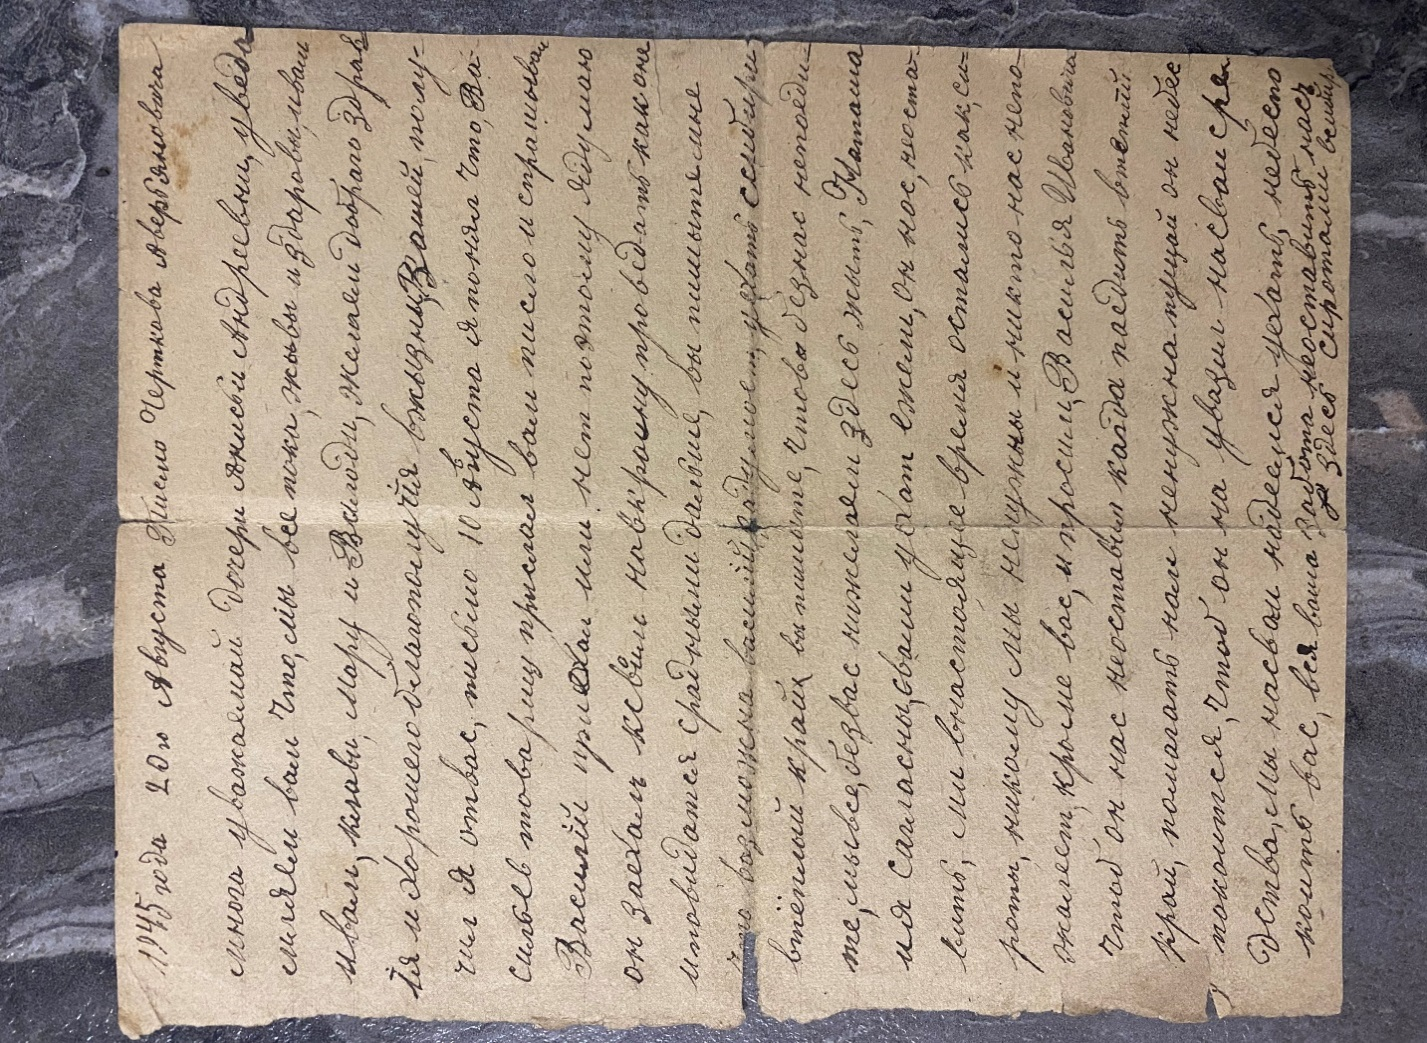 1945 года 20го Августа Писмо Черткова Аверьяновича
многа уважаемай дочери Анисьи Андреевни, уведо
мляем вам что, мы все пока, живы и здаровы, чваи
ивам, клавы, Мару и Валоди, желаем доброго здрав
ія и харошего благополучія вжызны, Вашей, полу-
чил я отвас, писмо 10 Августа я понял что, Ва-
сильев товарищ прислал вам писмо и спрашывал
Василій приехал или нет поэтому я думаю
он заехаль ксвоим на вкраину проведать как оне
и повидатся с радными дальше, вы пишыте мне
что возможна василій надумает, уехать ссибири
втёплый край, вы пишыте, чтобы безнас непоеди-
те, мывсе, безвас нижелаем здесь жыть, Наташа
ния сагласны, свами уехат ежели, он нос, неоста-
вить, ми внастоящее время остались как, си-
роты, никому мы ненужны и никто нас непо-
жалеет, кроме вас, и просим, Василья Ивановича
чтоб он нас неоставил когда паедить втеплій
край, помагать нам ненужна пущай он небес
покоится, чтоб он на увазил насваи сред
дства, мы насваи надеемся уехать, небеспо
коить вас, вся ваша забота неоставить насъ
здесь сиротами всибир